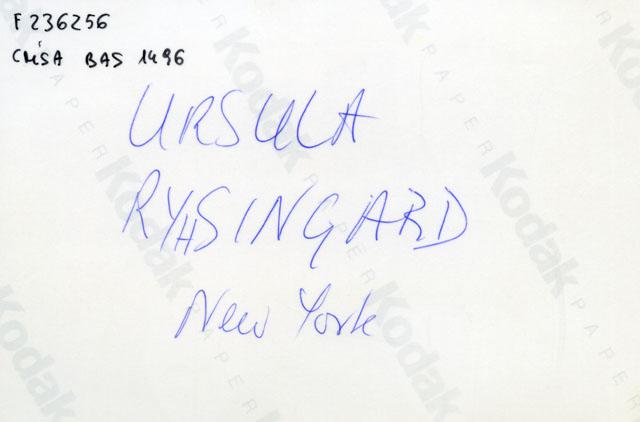 F 236256
CMSA BAS 1496
URSULA
RYHSINGARD
New York
Kodak
PAPER
Kodak
PAPER
Kodak
PAPER
Kodak
PAPER
Kodak
PAPER
Kodak